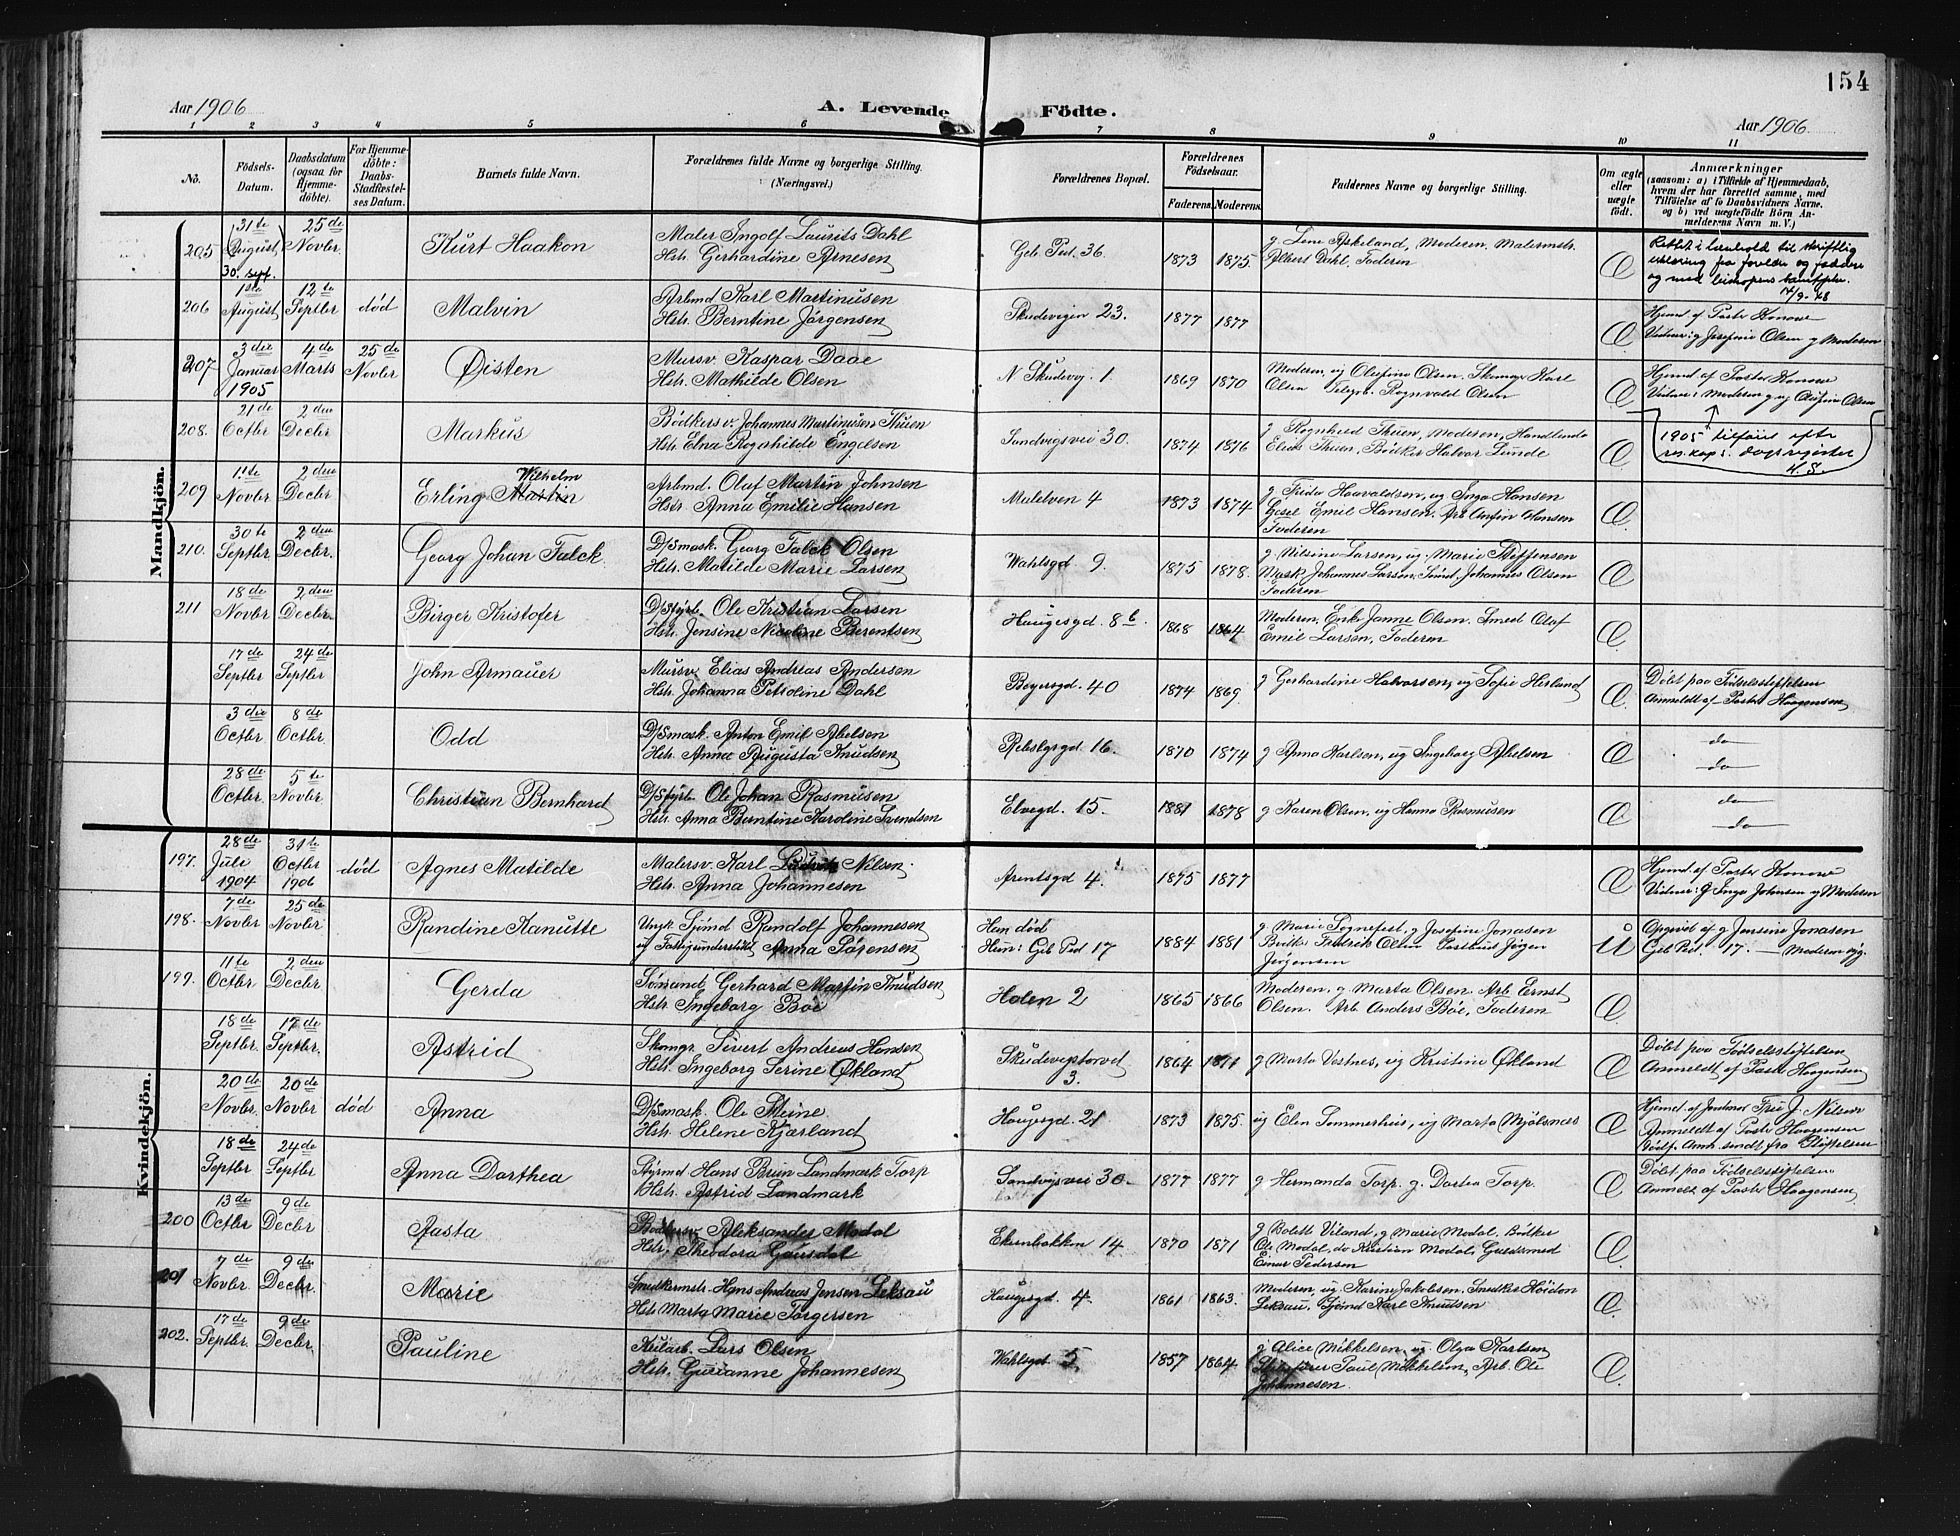 154
Aar 1906
A. Levende Födte.
Aar 1906
1 2 3 4 5 6 7 8 9 10 11
No.
Födsels-Datum.
Daabsdatum (ogsaa for Hjemmedöbte).
For Hjemmedöbte: Daabs-Stadfæstelses Datum.
Barnets fulde Navn.
Forældrenes fulde Navne og borgerlige Stilling. (Næringsvei.)
Forældrenes Bopæl.
Forældrenes Födselsaar.
Faderens. Moderens.
Faddernes Navne og borgerlige Stilling.
Om ægte eller uægte födt.
Anmærkninger
(saasom: a) i Tilfælde af Hjemmedaab,
hvem der har forrettet samme, med
Tilföielse af to Daabsvidners Navne.
og b) ved uægtefödte Börn Anmelderens
Navn m. V.)
Mandkjön.
205 31te August 30. sept. 25de Novbr Kurt Haakon
Maler Ingolf Laurits Dahl
Hstr. Gerhardine Arnesen
Geb Ped. 36. 1873 1875.
g. Lene Askeland, Moderen, Malermstr.
Albert Dahl, Faderen
Æ
Rettet i henhold til skriftlig
erklæring fra foreldre og faddere
og med biskopens samtykke.
206 1ste August 12te Septbr død Malvin
Arbmd Karl Martinusen
Hstr. Berntine Jörgensen
Skudevigen 23. 1877 1877
Æ
Hjemd af Pastor Konow
Vidner: g Josefine Olsen g Moderen
207 3die Januar 1905 4de Marts 25de Novbr Øisten
Mursv Kaspar Daae
Hstr. Mathilde Olsen
N Skudevig. 1 1869 1870
Moderen, ug Olefine Olsen. Skomag Karl
Olsen Telegrb. Rognvald Olsen
Æ
Hjemd af Pastor Konow
Vidner: Moderen g ug Olefine Olsen
208. 21de Octbr 2den Decbr Markus
Bödkersv. Johannes Martinusen Thuen
Hstr Elna Rognhilde Engelsen
Sandvigsvei 30. 1874 1876
g Rognheld Thuen, Moderen, Handlende
Elias Thuen, Bödker Halvor Lunde
Æ
1905 tilföiet efter
209 1ste Novbr 2den Decbr Erling Martin Wilhelm
Arbmd. Olaf Martin Johnsen
Hstr. Anna Emilie Hansen
Mulelven 4 1873 1874
g Frida Haavaldsen, ug Inga Hansen
Gesel Emil Hansen. Arb Anfin Hansen
Faderen
Æ
210. 30te Septbr 2den Decbr. Georg Johan Falck
D/Smask. Georg Falck Olsen
Hstr. Matilde Marie Larsen
Wahlsgd 9. 1875 1878.
g. Nilsine Larsen, ug. Marie Steffensen
Mask Johannes Larsen, Smed, Johannes Olsen
Faderen
Æ
211 18de Novbr 2den Decbr. Birger Kristofer
D/Styrb. Ole Kristian Larsen
Hstr. Jensine Nicoline Berentsen
Haugesgd. 8b. 1868 1864
Moderen, Enke Janne Olsen. Smed Olaf
Emil Larsen, Faderen
Æ
17de Septbr 24de Septbr John Armauer
Mursv. Elias Andreas Andersen
Hstr. Johanna Petroline Dahl
Beyersgd. 40 1874 1869.
g Gerhardine Halvorsen, ug Sofie Herland
Æ
Döbt paa Födselsstiftelsen
Anmeldt af Pastor Haagensen
3die Octbr 8de Octbr. Odd
D/Smask. Anton Emil Abelsen
Hstr. Anna Augusta Knudsen
Rebslgrgd 16. 1870 1874
g Anna Karlsen, ug Ingeborg Abelsen
Æ
do
do
28de Octbr. 5te Novbr. Christian Bernhard
D/Styrb. Ole Johan Rasmusen
Hstr. Anna Berntine Karoline Svendsen
Elvegd. 15. 1881 1878
g Karen Olsen, ug Hanna Rasmusen
Æ
do
do
Kvindekjön.
197. 28de Juli 1904 31te Octbr 1906 død Agnes Matilde
Malersv. Karl Ludvik Nilsen.
Hstr. Anna Johannesen
Arentsgd 4. 1875 1877
Æ
Hjemd af Pastor Konow
Vidner: g Inga Johnsen g Moderen
198. 7de Novbr. 25de Novbr. Randine Kanutte
Ungk Sjömd Randolf Johannesen
og Fattigunderstöttet Anna Sörensen
Han død
Hun: Geb Ped 17 1884 1881
g Marie Sognefest, g Josefine Jonasen
Budkr Fredrik Olsen Postbud Jörgen
Jörgensen
U
Opgivet af g Jensine Jonasen
Geb Ped. 17. — Moderen syg.
199. 11te Octbr 2den Decbr. Gerda
Sömand Gerhard Martin Knudsen
Hstr. Ingeborg Böe
Holen 2 1865 1866
Moderen, g Marta Olsen. Arb Ernst
Olsen. Arb Anders Böe, Faderen
Æ
18de Septbr. 17de Septbr. Astrid
Skomgr. Sivert Andreas Hansen
Hstr. Ingeborg Serine Økland
Skudevigstorvet 3. 1864 1871
g Marta Vestnes, ug Kristine Økland
Æ
Döbt paa Födselsstiftelsen
Anmeldt af Pastor Haagensen
20de Novbr. 20de Novbr død Anna
D/Smask. Ole Steine
Hstr. Helene Kjærland
Haugesgd. 21 1873 1875.
ug Elen Sommerhus, ug Marta Mjölsnæs
Æ
Hjemd af Jordmod Fru J. Nilsen
Anmeldt af Pastor Haagensen
Födsl. Anm. sendt fra Stiftelsen
18de Septbr 24de Septbr Anna Dorthea
Styrmd Hans Brun Landmark Torp
Hstr. Astrid Landmark
Sandvigsvei 30. 1877 1877
g Hermanda Torp. g. Dortea Torp.
Æ
Döbt paa Födselsstiftelsen
Anmelt af Pastor Haagensen
200 13de Octbr 9de Decbr. Aasta
Bödkersv Aleksander Modal
Hstr. Theodora Gausdal
Ekrenbakken 14 1870 1871
g Bolett Viland, g Marie Modal, Bödker
Ole Modal, do Kristian Modal, Guldsmed
Einar Pedersen
Æ
201 7de Novbr 9de Decbr Marie
Snedkermstr. Hans Andreas Jensen Leksau
Hstr Marta Marie Torgersen
Haugesgd. 4. 1861 1863.
Moderen, ug Karine Jakobsen. Snedker Höidon
Leksau. Sjömd Karl Knudsen
Æ
202. 17de Septbr. 9de Decbr. Pauline
Kularb. Lars Olsen
Hstr. Gurianne Johannesen
Wahlsgd 5. 1857 1864
g Alice Mikkelsen, ug. Olga Karlsen
Paul Mikkelsen, Arb. Ole
Johannesen.
Æ